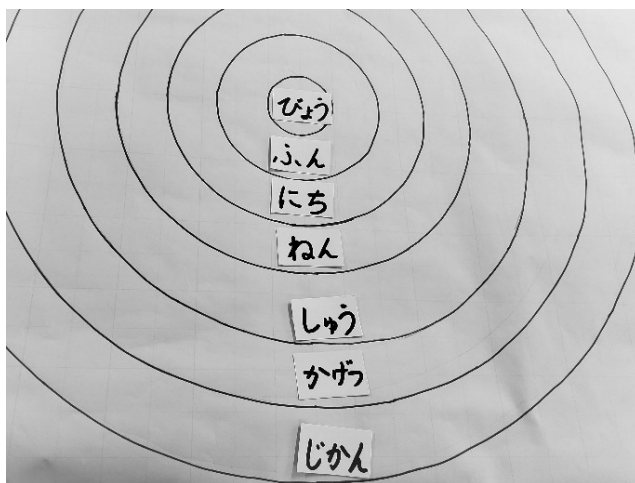 びょう
ふん
にち
ねん
しゅう
かげつ
じかん